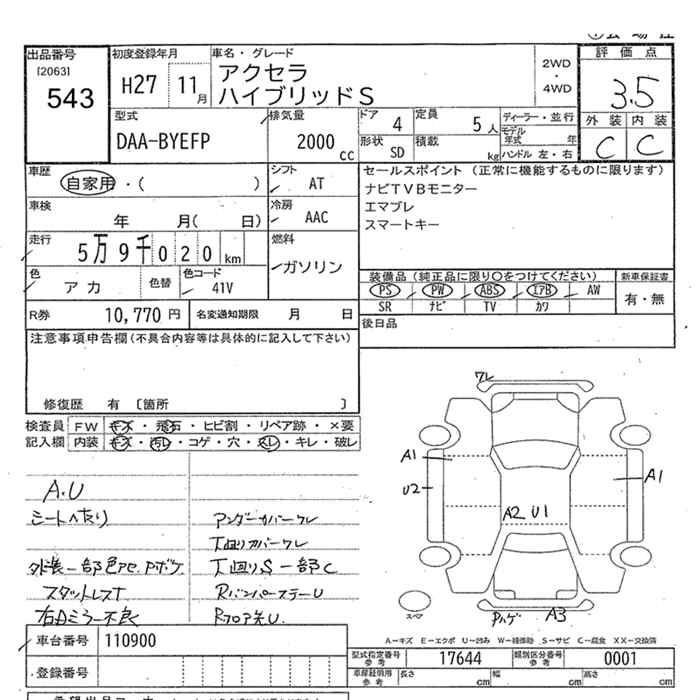 出品番号
[2063]
543
初度登録年月
H27 11月
車名・グレード
アクセラ
ハイブリッドS
2WD
・
4WD
評価点
3.5
外装 内装
C C
型式
DAA-BYEFP
排気量
2000 cc
ドア 4
定員 5人
形状 SD
積載 kg
ディーラー・並行
モデル年式 年
ハンドル 左・右
車歴
自家用・( )
シフト
AT
セールスポイント (正常に機能するものに限ります)
ナビTVBモニター
エマブレ
スマートキー
車検
年 月( 日)
冷房
AAC
走行
5万9千020km
燃料
ガソリン
色
アカ
色替
色コード
41V
装備品 (純正品に限り○をつけてください)
PS PW ABS エアB AW
SR ナビ TV カワ
新車保証書
有・無
R券 10,770円
名変通知期限 月 日
後日品
注意事項申告欄(不具合内容等は具体的に記入して下さい)
修復歴 有 [箇所 ]
検査員記入欄
FW キズ・飛石・ヒビ割・リペア跡・×要
内装 キズ・汚レ・コゲ・穴・スレ・キレ・破レ
A.U
シートヘたり
外装一部色アセ、Pボケ
スタットレスT
右Dミラー不良
アンダーカバーワレ
T廻りカバーワレ
T廻りS一部C
RバンパーステーU
RフロアまU.
ワレ
A1
U2
A2 U1
A1
スペア
Pハゲ A3
A-キズ E-エクボ U-凹み W-補修跡 S-サビ C-腐食 XX-交換済
車台番号 110900
登録番号
型式指定番号 参考 17644
類別区分番号 参考 0001
車庫証明用 参考 長さ cm 幅 cm 高さ cm